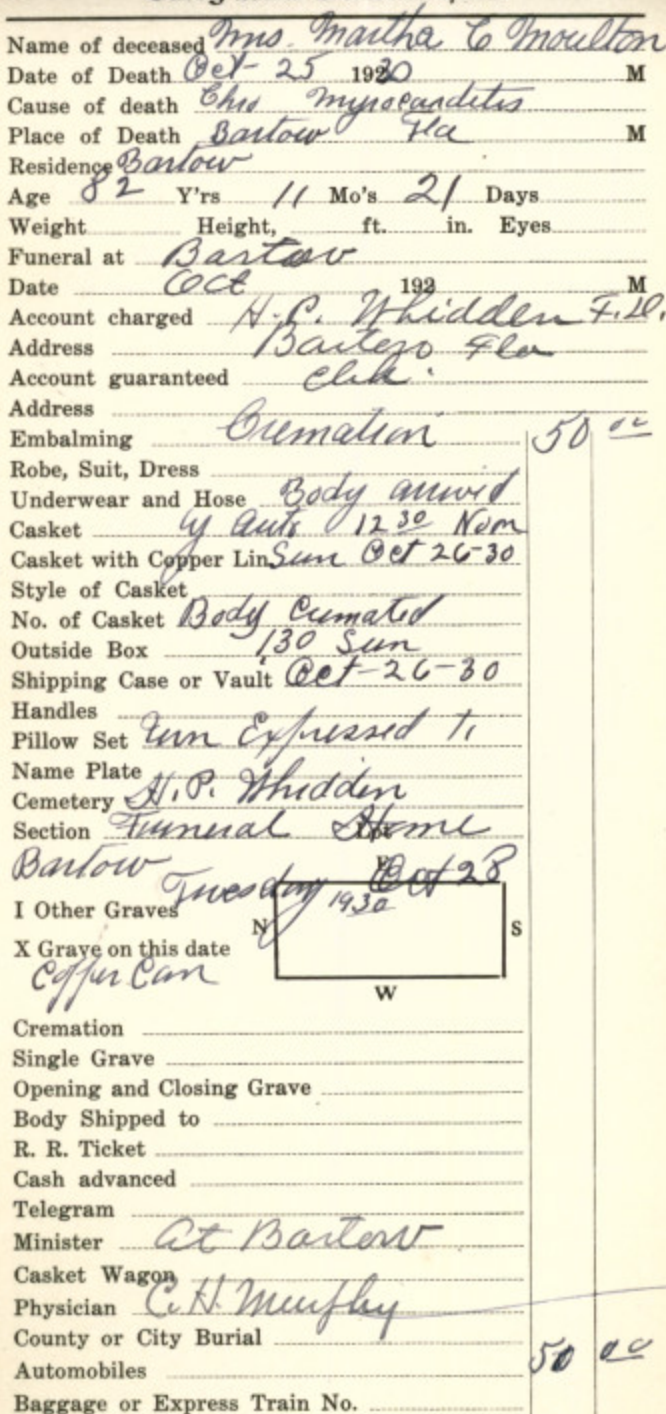 Name of deceased Mrs. Martha C Moulton
Date of Death Oct-25 1930 M
Cause of death Chro myrocarditis
Place of Death Bartow Fla M
Residence Bartow
Age 82 Y'rs 11 Mo's 21 Days
Weight Height, ft. in. Eyes
Funeral at Bartow
Date Oct 192 M
Account charged H.P. Whidden F.D.
Address Bartow Fla
Account guaranteed
Address
Embalming Cremation 50 00
Robe, Suit, Dress
Underwear and Hose Body arrived
Casket by Auto 12 30 Noon
Casket with Copper Lin Sun Oct 26-30
Style of Casket
No. of Casket Body Cremated
Outside Box 130 Sun
Shipping Case or Vault Oct-26-30
Handles
Pillow Set Urn Expressed to
Name Plate
Cemetery H.P. Whidden
Section Funeral Home
Bartow Tuesday Oct 28
1930
I Other Graves
N S
X Grave on this date
Copper Can
W
Cremation
Single Grave
Opening and Closing Grave
Body Shipped to
R. R. Ticket
Cash advanced
Telegram
Minister At Bartow
Casket Wagon
Physician C. H. Murphy
County or City Burial
Automobiles 50 00
Baggage or Express Train No.